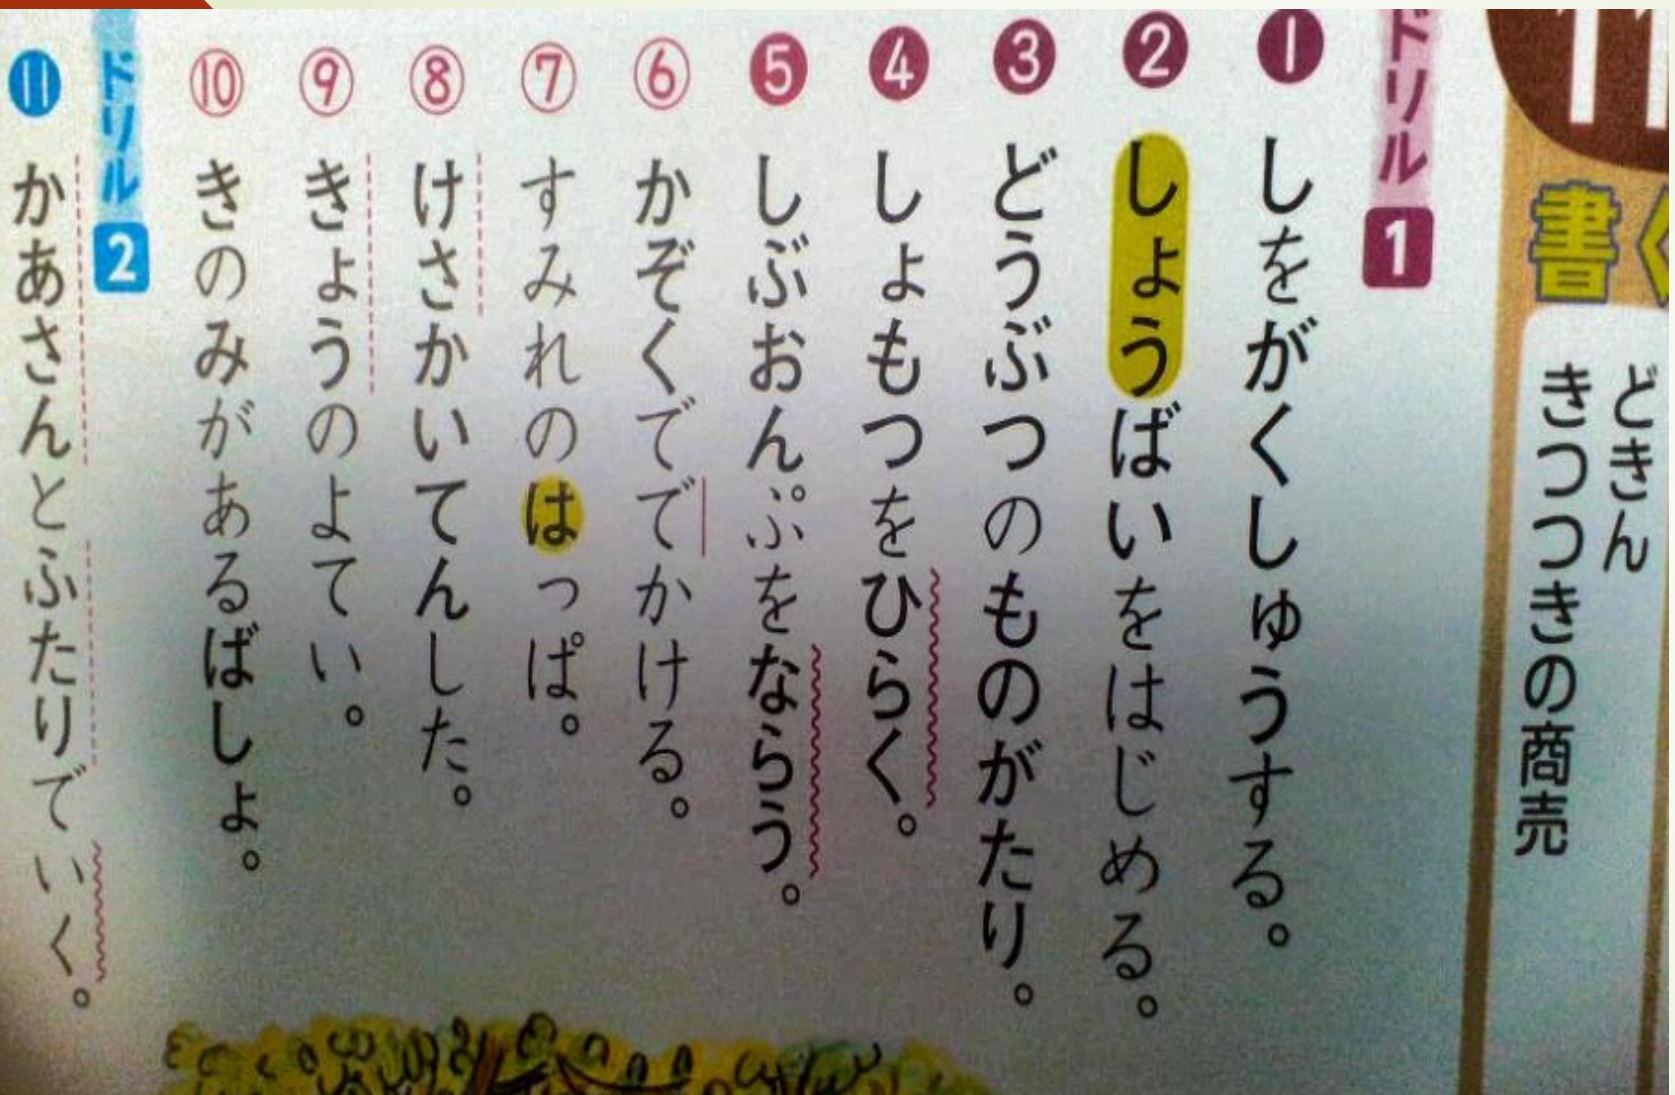 11
書く
どきん
きつつきの商売
ドリル1
① しをがくしゅうする。
② しょうばいをはじめる。
③ どうぶつのものがたり。
④ しょもつをひらく。
⑤ しぶおんぷをならう。
⑥ かぞくででかける。
⑦ すみれのはっぱ。
⑧ けさかいてんした。
⑨ きょうのよてい。
⑩ きのみがあるばしょ。
ドリル2
⑪ かあさんとふたりでいく。